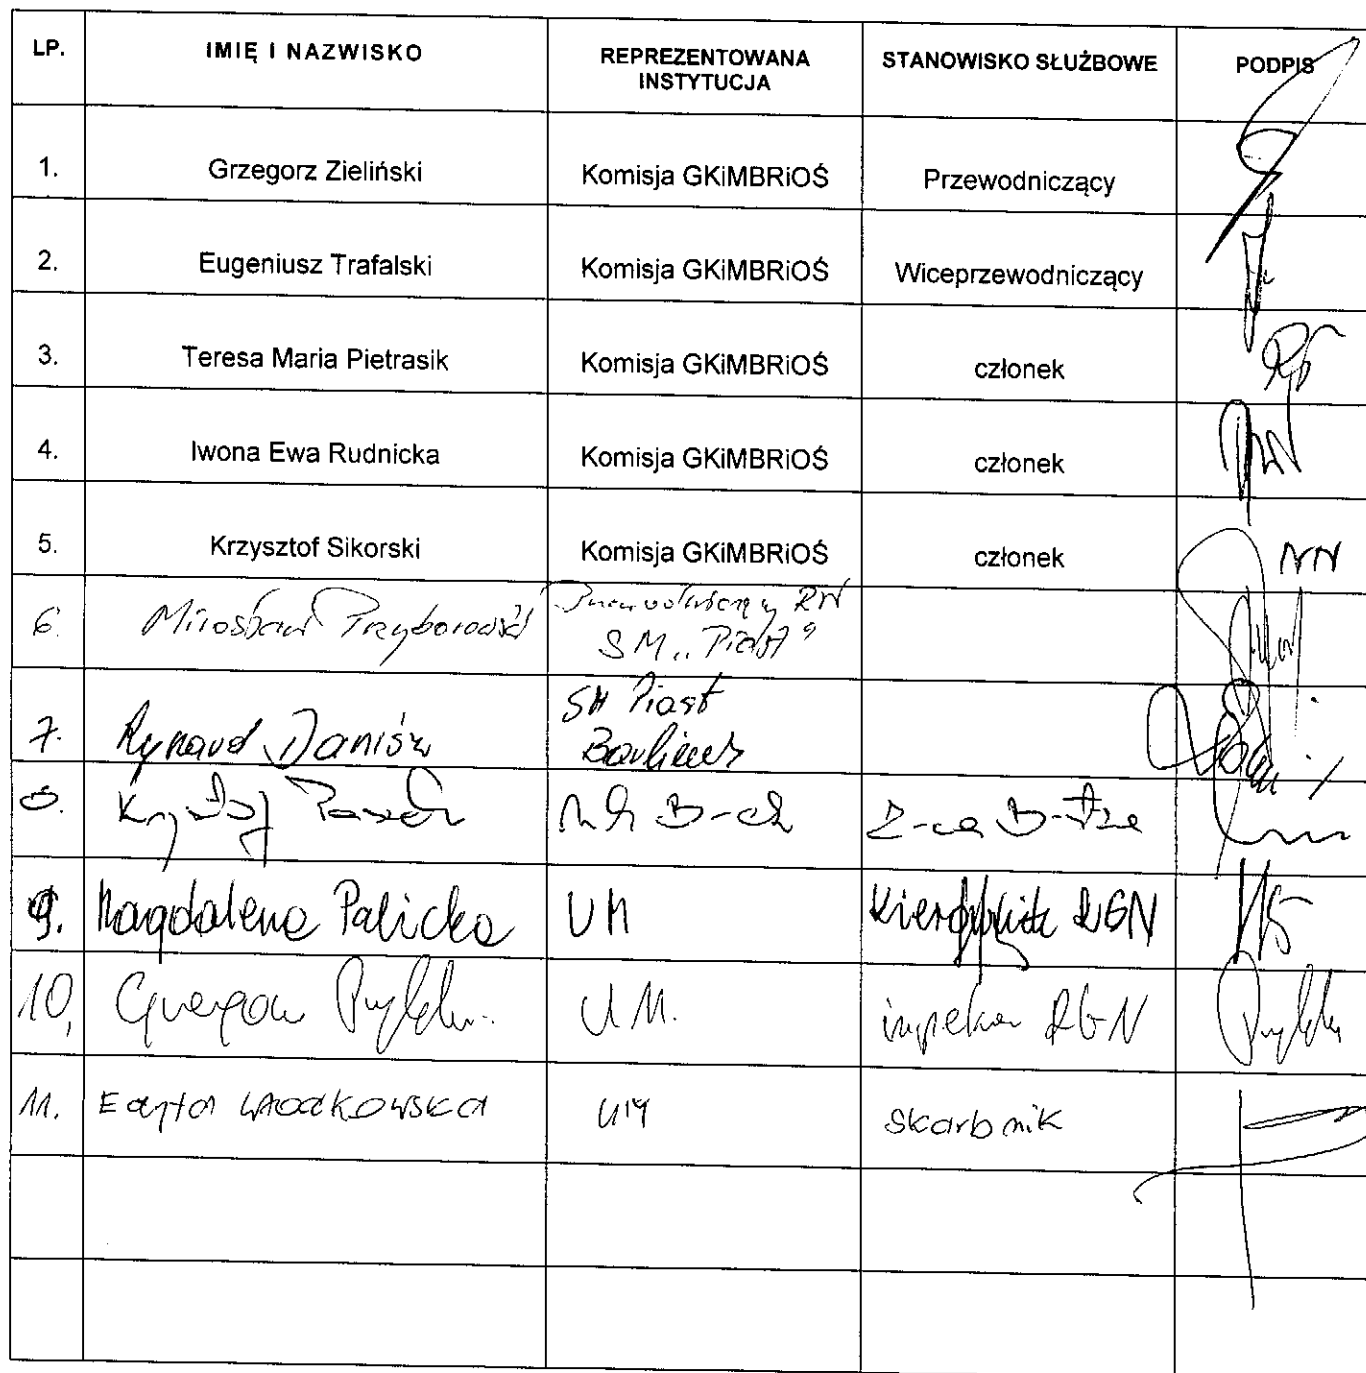 LP. IMIĘ I NAZWISKO REPREZENTOWANA INSTYTUCJA STANOWISKO SŁUŻBOWE PODPIS
1. Grzegorz Zieliński Komisja GKiMBRiOŚ Przewodniczący
2. Eugeniusz Trafalski Komisja GKiMBRiOŚ Wiceprzewodniczący
3. Teresa Maria Pietrasik Komisja GKiMBRiOŚ członek
4. Iwona Ewa Rudnicka Komisja GKiMBRiOŚ członek
5. Krzysztof Sikorski Komisja GKiMBRiOŚ członek NN
6. Mirosław Przyborowski Przewodniczący RN
SM „Piast"
7. SM Piast
8. Krzysztof Z-ca B-rza
9. Magdalena Palicka UM Kierownik RGN
10, Grzegorz U.M. inspektor RGN
11. Edyta Włodkowska UM skarbnik